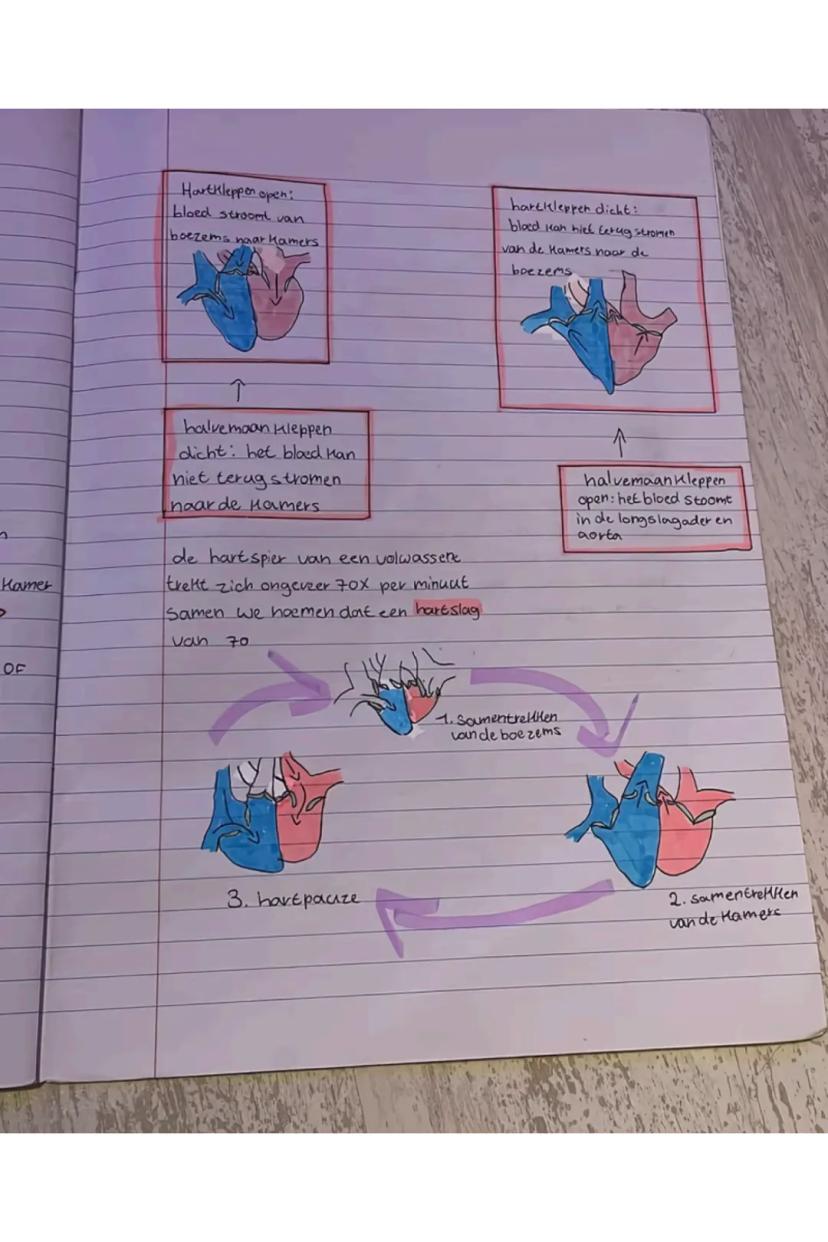 Hartkleppen open:
bloed stroomt van
boezems naar kamers
hartkleppen dicht:
bloed kan niet terug stromen
van de kamers naar de
boezems
halvemaan kleppen
dicht: het bloed kan
niet terug stromen
naar de kamers
halvemaankleppen
open: het bloed stoomt
in de longslagader en
aorta
de hartspier van een volwassene
trekt zich ongeveer 70x per minuut
samen we noemen dat een hartslag
van 70
1. samentrekken
van de boezems
2. samentrekken
van de kamers
3. hartpauze
n
kamer
OF